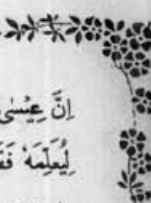 اِنَّ عِيْسٰى
لِيُعَلِّمَهٗ فَقَ